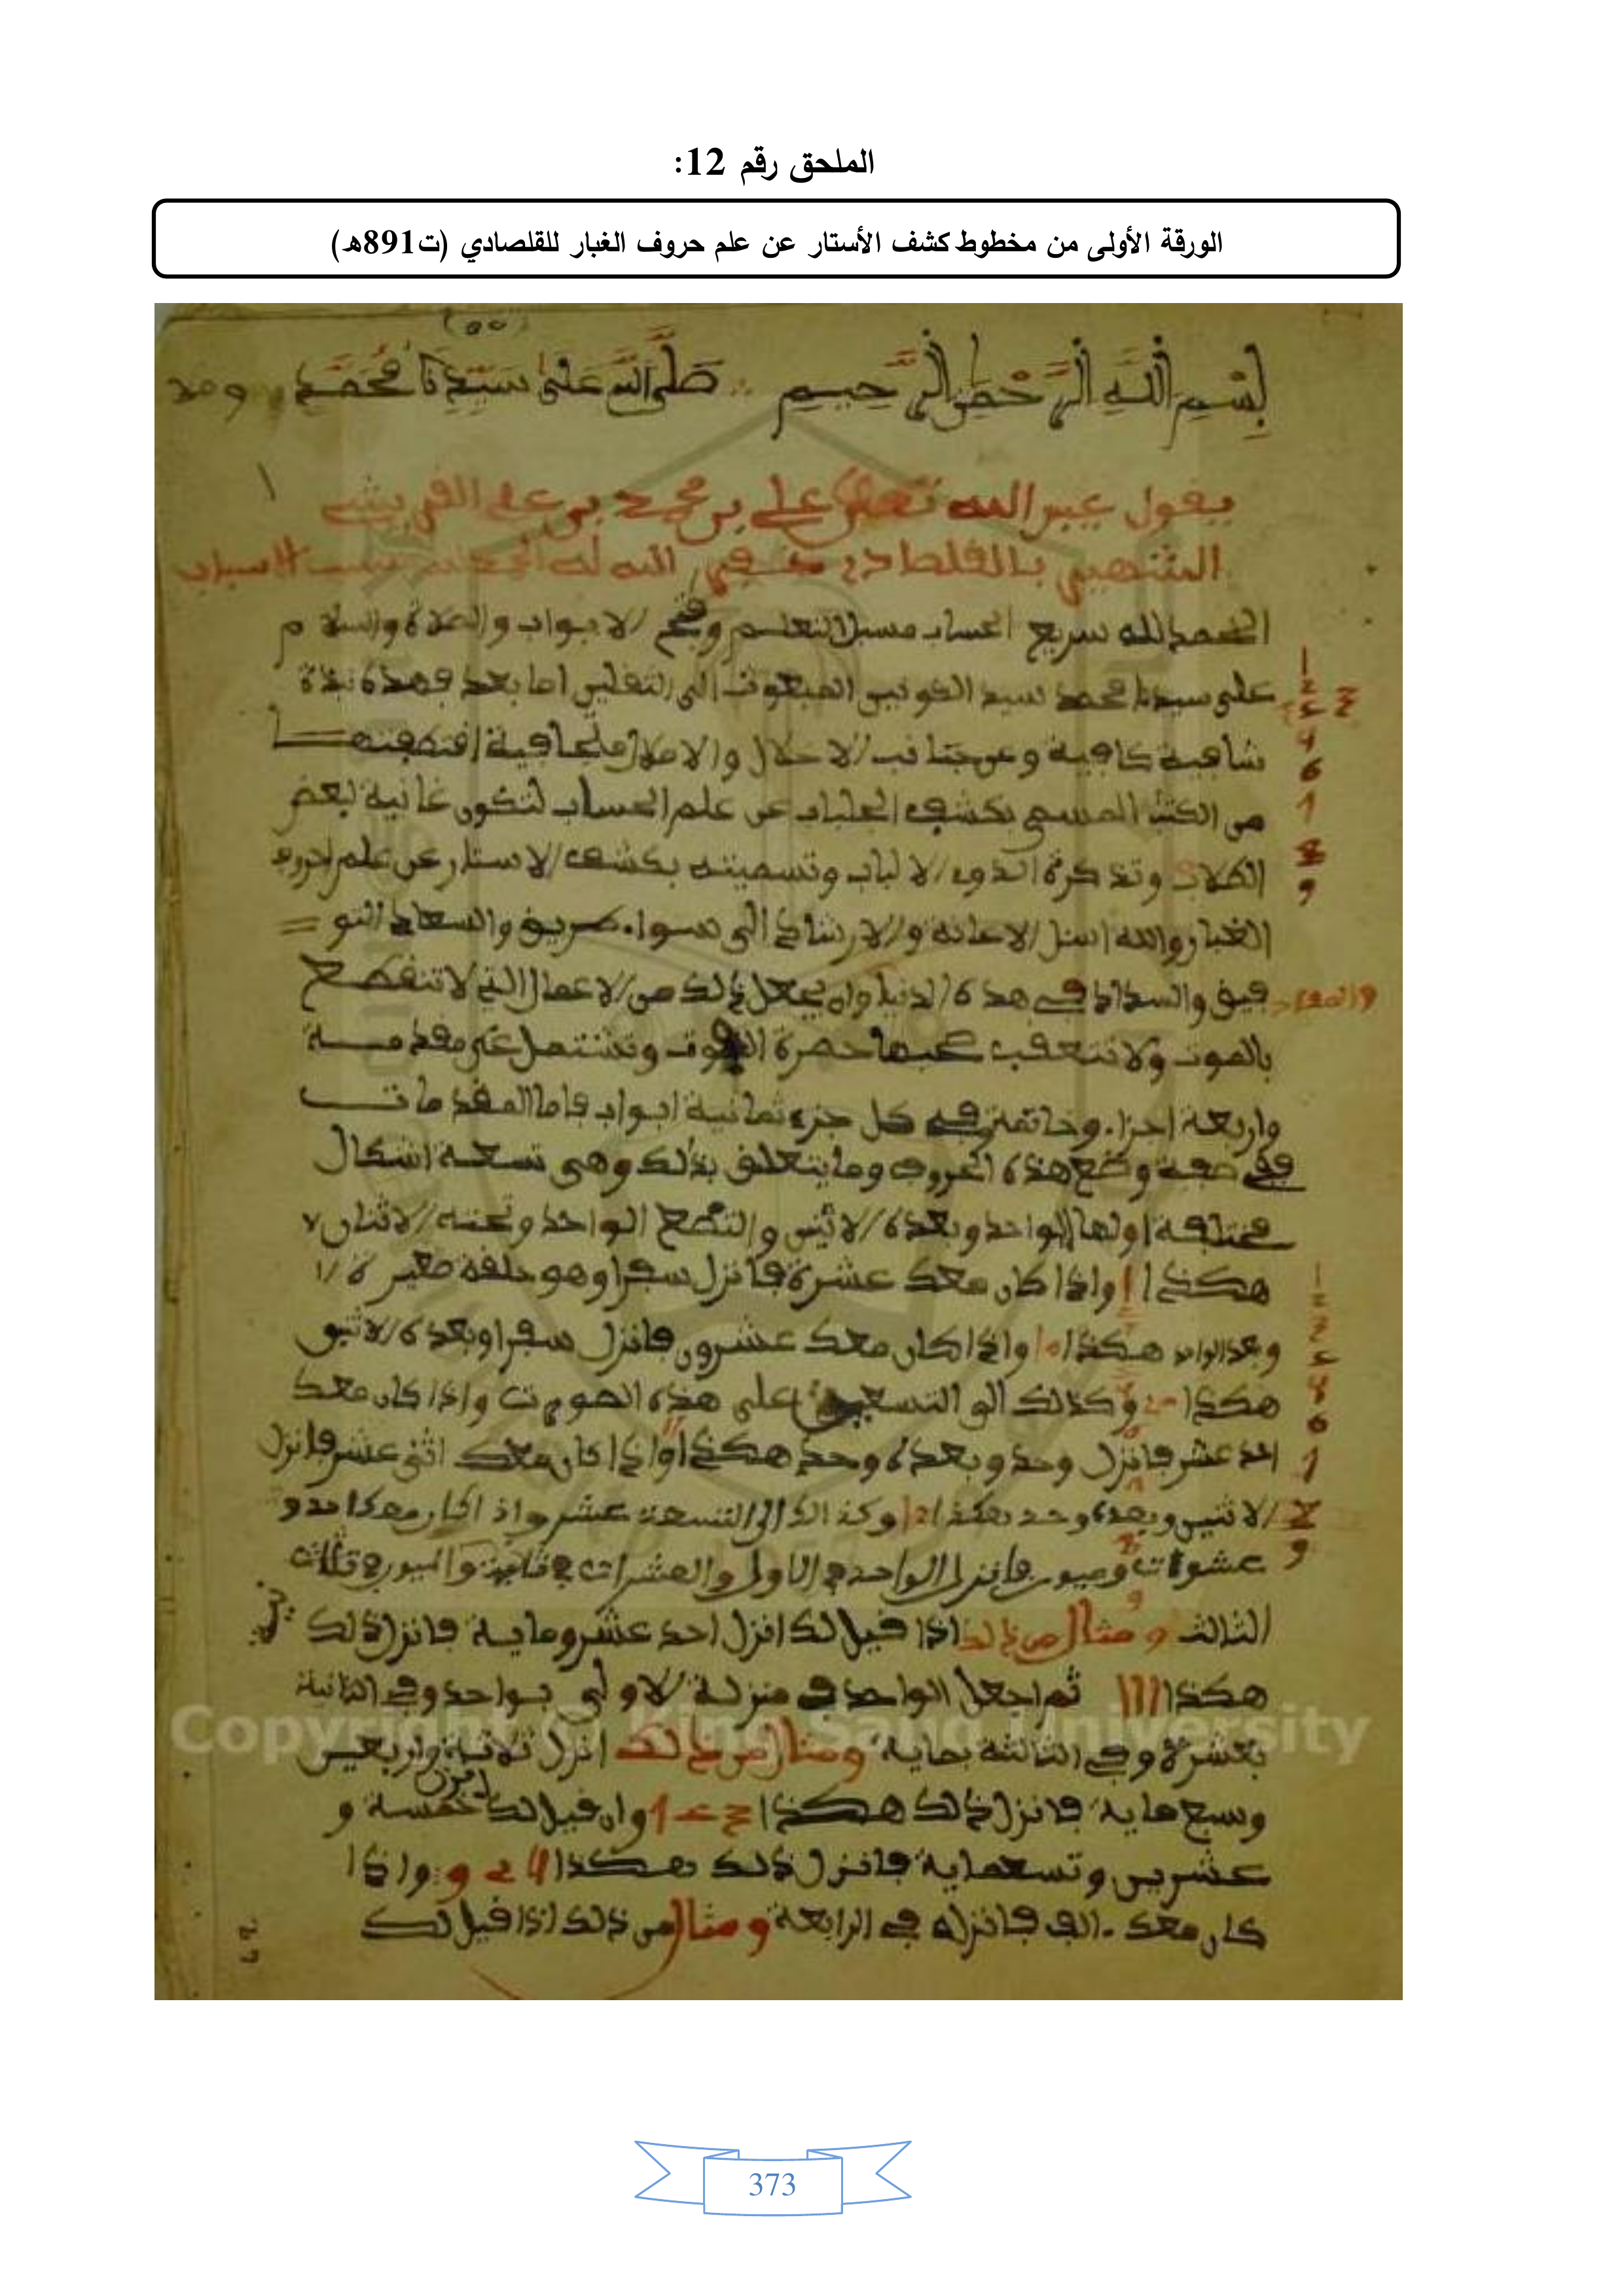 الملحق رقم 12:
الورقة الأولى من مخطوط كشف الأستار عن علم حروف الغبار للقلصادي (ت891هـ)
بسم الله الرحمن الرحيم صلى الله على سيدنا محمد
يقول عبد الله تعلى علي بن محمد بن علي القريشي
الشهير بالقلصادي الله له الاسباب
الحمد لله سريع الحساب مسبل التعليم وفتح الابواب والصلاة والسلام
على سيدنا محمد سيد الكونين المبعوث الى الثقلين اما بعد فهذه نبذة
شافية كافية وعن جناب الاخلال والاملال متجافية اقتطفتها
من الكتب المسمى بكشف الجلباب عن علم الحساب لتكون غانية لبعض
الطلاب وتذكرة الذوي الالباب وتسميته بكشف الاستار عن علم حروف
الغبار والله اسئل الاعانة والارشاد الى سواء طريق والسعاد التو
فيق والسداد في هذه الدنيا وان يجعل ذلك من الاعمال التي لا تنقطع
بالموت ولا تتعقب حصرة الفوت وتشتمل على مقدمة
واربعة اجزاء وخاتمة وفي كل جزء ثمانية ابواب فاما المقدمات
ففي صفة وضع هذه الحروف وما يتعلق بذلك وهي تسعة اشكال
مختلفة اولها الواحد وبعده الاثنين والتضع الواحد وتحته الاثنان
هكذا واذا كان معك عشرة فانزل سفرا وهو حلقة صغيرة
وبعد الواحد هكذا 10 واذا كان معك عشرون فانزل سفرا وبعده الاثنين
هكذا وكذلك الى التسعين على هذه واذا كان معك
احد عشر فانزل وحد وبعده وحد هكذا 11 واذا كان معك اثنى عشر فانزل
الاثنين وبعده وحد هكذا 12 وكذالك الى التسعة عشر واذا كان معك احدو
عشرات وميون فانزل الواحد في الاولى والعشرات في ثانية والميون في ثلث
الثالث ومثال من ذلك اذا قيل لك انزل احد عشر وماية فانزل ذلك
هكذا 111 ثم اجعل الواحد في منزلة الاولى بواحد وفي الثانية
بعشرة وفي الثالثة بماية ومثال من ذلك انزل ثلاثة واربعين
وسبع ماية فانزل ذلك هكذا وان قيل لك انزل خمسة و
عشرين وتسعماية فانزل ذلك هكذا واذا
كان معك الف فانزله في الرابعة ومثال من ذلك اذا قيل لك
Copyright © King Saud University
373